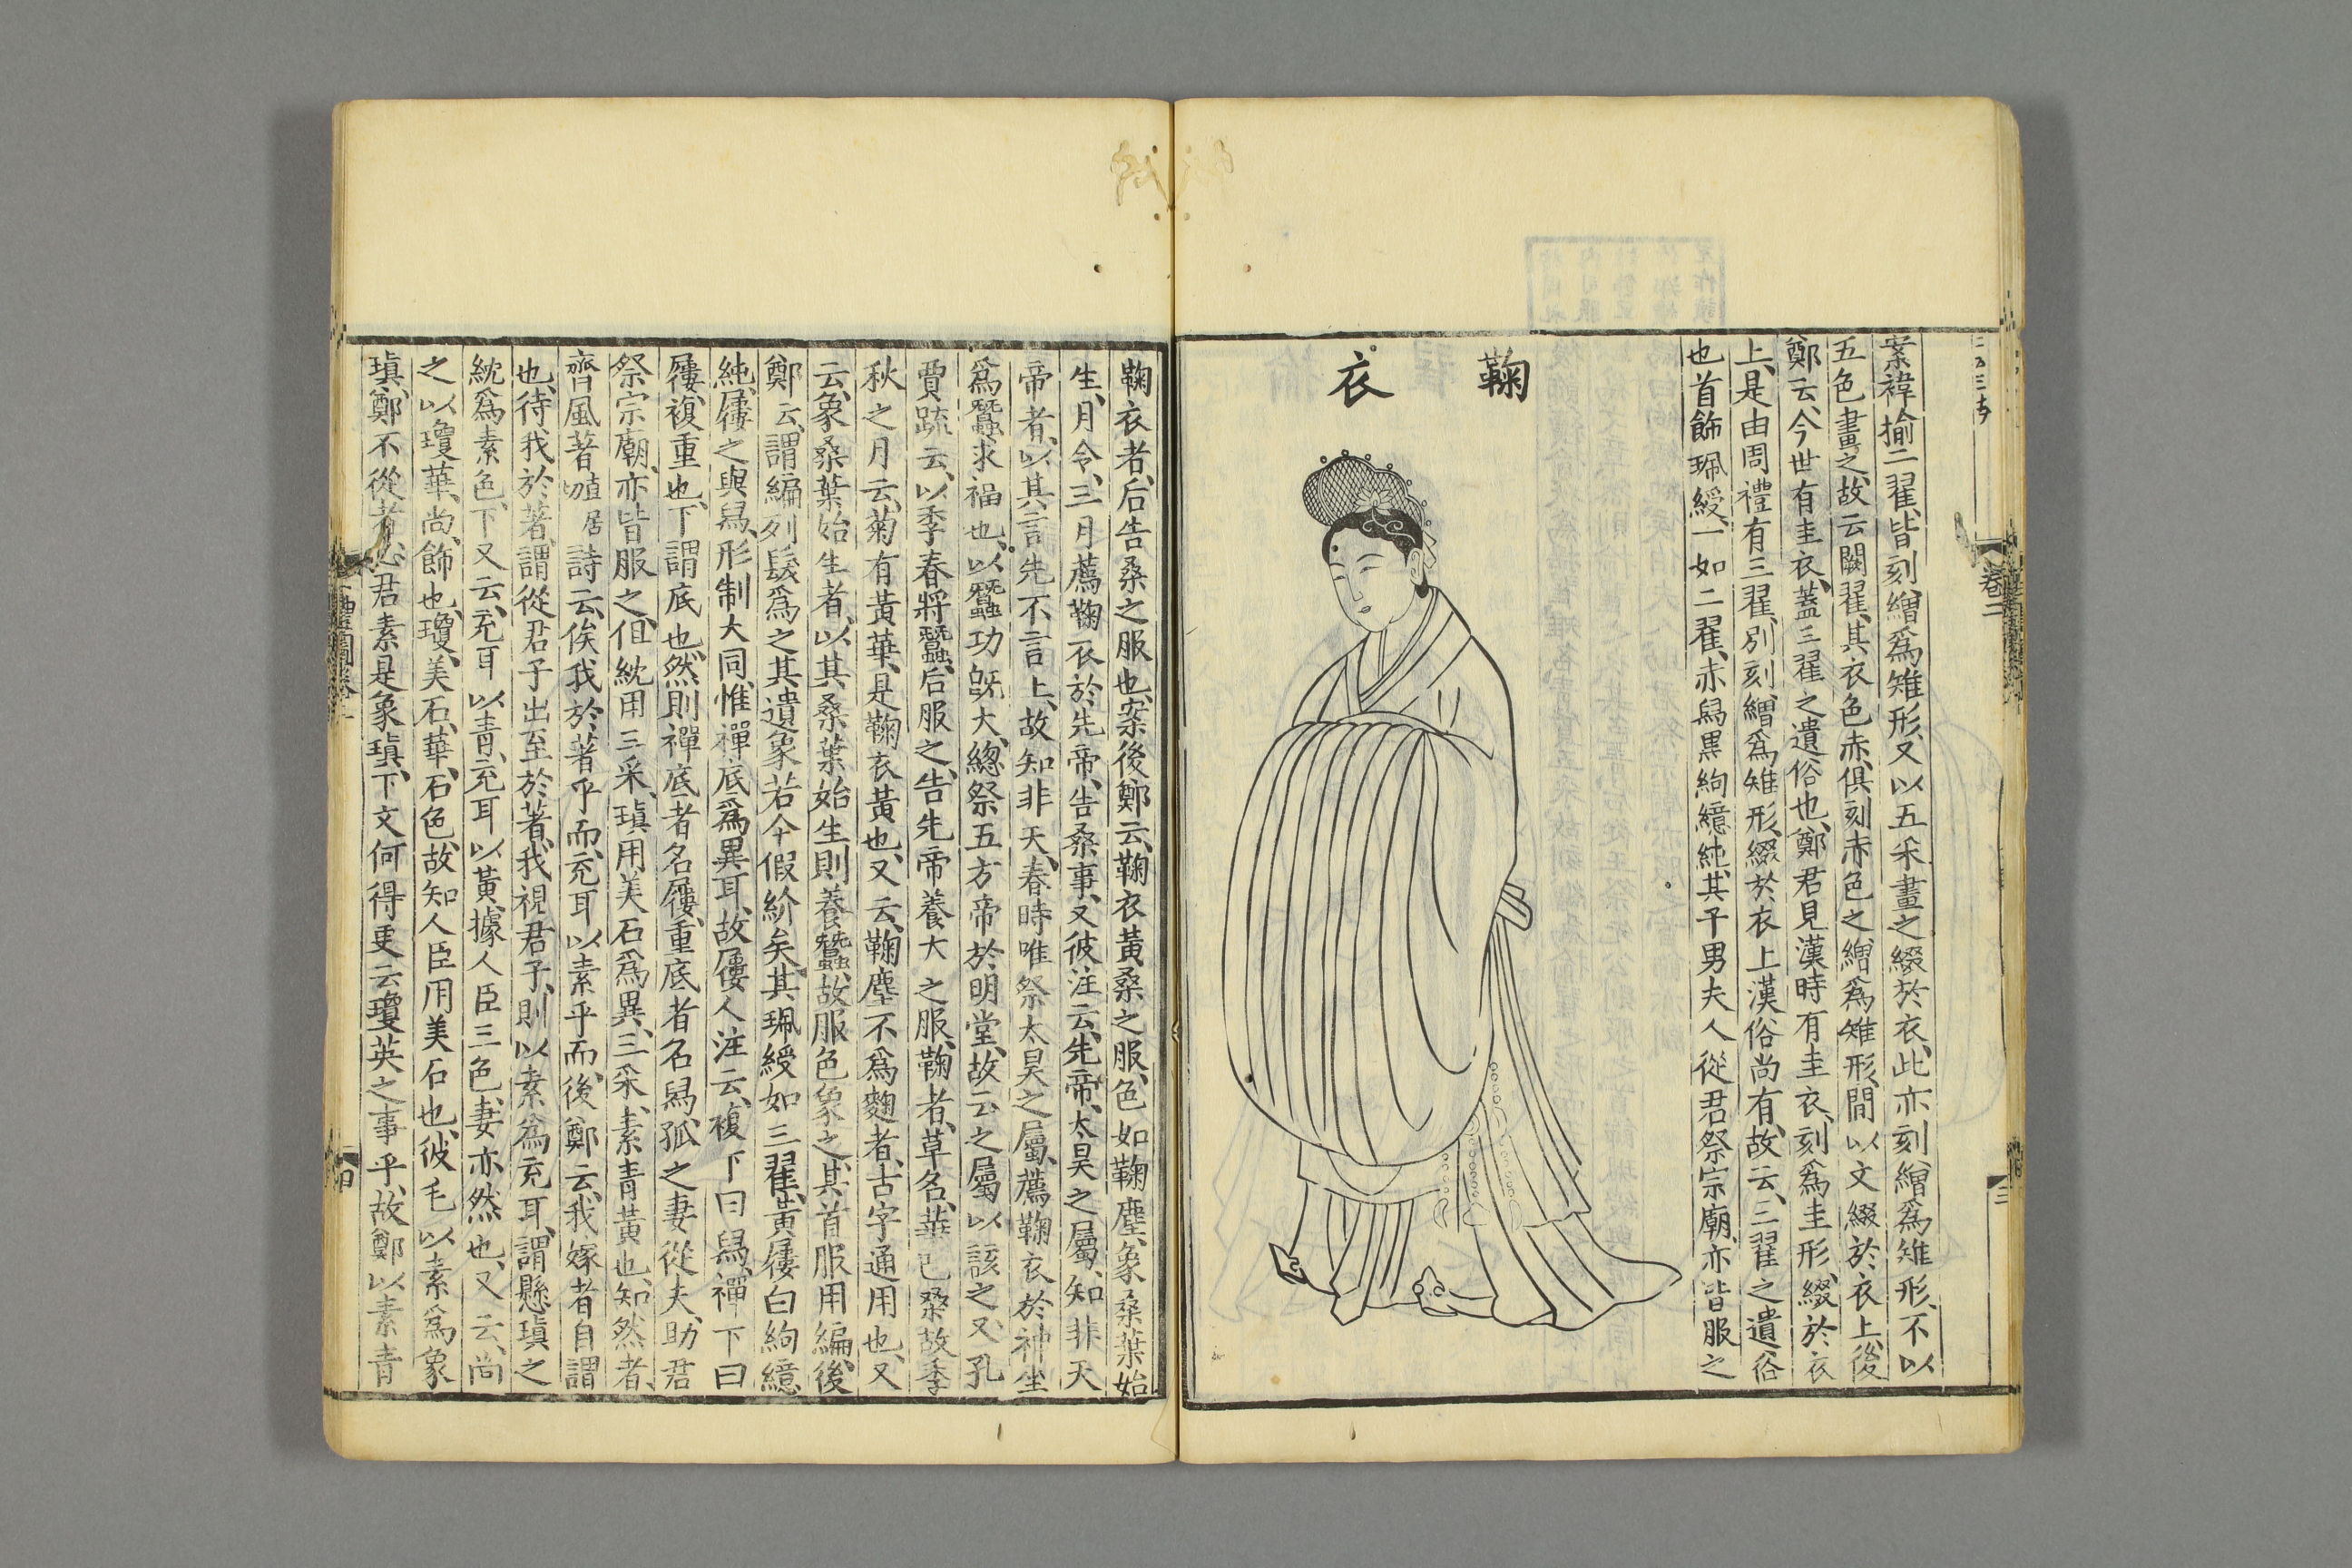 案褘揄二翟皆刻繒爲雉形又以五采畫之綴於衣此亦刻繒爲雉形不以
五色畫之故云闕翟其衣色赤俱刻赤色之繒爲雉形間以文綴於衣上後
鄭云今世有圭衣蓋三翟之遺俗也鄭君見漢時有圭衣刻爲圭形綴於衣
上是由周禮有三翟別刻繒爲雉形綴於衣上漢俗尚有故云三翟之遺俗
也首飾珮綬一如二翟赤舄黒絇繶純其子男夫人從君祭宗廟亦皆服之
鞠衣
卷二
三
鞠衣者后告桑之服也案後鄭云鞠衣黃桑之服色如鞠塵象桑葉始
生月令三月薦鞠衣於先帝告桑事又彼注云先帝太昊之屬知非天
帝者以其言先不言上故知非天春時唯祭太昊之屬薦鞠衣於神坐
爲蠶求福也以蠶功既大總祭五方帝於明堂故云之屬以該之又孔
賈疏云以季春將蠶后服之告先帝養大之服鞠者草名華已桑故季
秋之月云菊有黃華是鞠衣黃也又云鞠塵不爲麴者古字通用也又
云象桑葉始生者以其桑葉始生則養蠶故服色象之其首服用編後
鄭云謂編列髮爲之其遺象若今假紒矣其珮綬如三翟黃屨白絇繶
純屨之與舄形制大同惟禪底爲異耳故屨人注云複下曰舄禪下曰
屨複重也下謂底也然則禪底者名屨重底者名舄孤之妻從夫助君
祭宗廟亦皆服之但紞用三采瑱用美石爲異三采素青黃也知然者
齊風著詩云俟我於著乎而充耳以素乎而後鄭云我嫁者自謂
也待我於著謂從君子出至於著我視君子則以素爲充耳謂懸瑱之
紞爲素色下又云充耳以青充耳以黃據人臣三色妻亦然也又云尚
之以瓊華尚飾也瓊美石華石色故知人臣用美石也彼毛以素爲象
瑱鄭不從者必君素是象瑱下文何得更云瓊英之事乎故鄭以素青